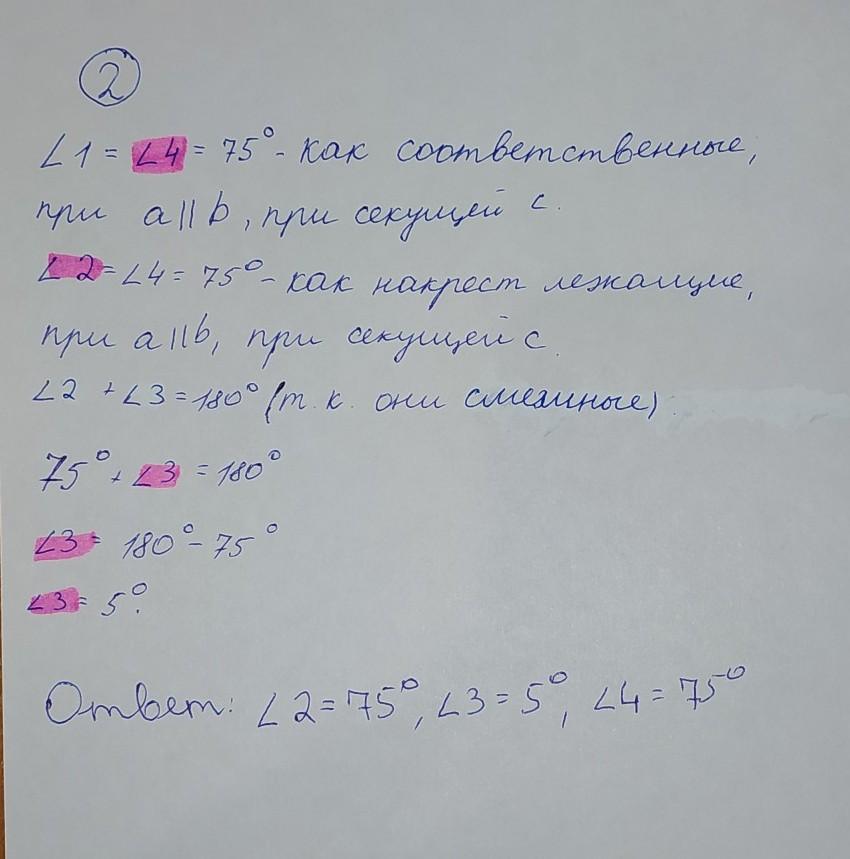 2
∠1 = ∠4 = 75° - как соответственные,
при a || b, при секущей c.
∠2 = ∠4 = 75° - как накрест лежащие,
при a || b, при секущей c.
∠2 + ∠3 = 180° (т.к. они смежные).
75° + ∠3 = 180°
∠3 = 180° - 75°
∠3 = 5°.
Ответ: ∠2 = 75°, ∠3 = 5°, ∠4 = 75°